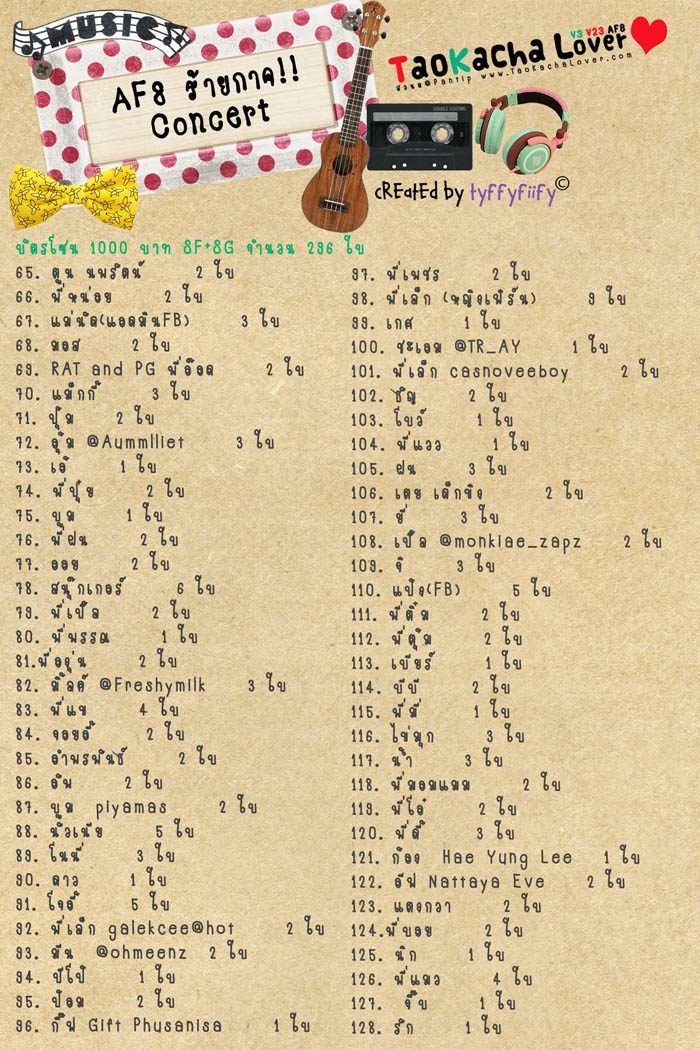 MUSIC
AF8 ร้ายกาจ!!
Concert
V3 V23 AF8
TaoKacha Lover
ห้วยฃ@Pantip www.TaoKachaLover.com
DOUBLE COATING
crEatEd by tyffyfiify©
บัตรโซน 1000 บาท 8F+8G จำนวน 296 ใบ
65. ตูน นพรัตน์ 2 ใบ
66. พี่หน่อย 2 ใบ
67. แม่นัด(แอดมินFB) 3 ใบ
68. มอส 2 ใบ
69. RAT and PG พี่อ๊อด 2 ใบ
70. แม็กกี้ 3 ใบ
71. ปุ๊ม 2 ใบ
72. อุ้ม @Aummlliet 3 ใบ
73. เอ้ 1 ใบ
74. พี่ปุ้ย 2 ใบ
75. บูม 1 ใบ
76. พี่ฝน 2 ใบ
77. ออย 2 ใบ
78. สนุ๊กเกอร์ 6 ใบ
79. พี่เปิ้ล 2 ใบ
80. พี่พรรณ 1 ใบ
81.พี่องุ่น 2 ใบ
82. มิ้ลค์ @Freshymilk 3 ใบ
83. พี่แข 4 ใบ
84. จอยอี้ 2 ใบ
85. อำพรพันธ์ 2 ใบ
86. อัพ 2 ใบ
87. บูม piyamas 2 ใบ
88. นัวเนีย 5 ใบ
89. โนนี่ 3 ใบ
90. ดาว 1 ใบ
91. โจอี้ 5 ใบ
92. พี่เล็ก galekcee@hot 2 ใบ
93. มีน @ohmeenz 2 ใบ
94. ปีโป้ 1 ใบ
95. ป้อม 2 ใบ
96. กิ๊ฟ Gift Phusanisa 1 ใบ
97. พี่เพชร 2 ใบ
98. พี่เล็ก (หญิงเฟิร์น) 9 ใบ
99. เกศ 1 ใบ
100. ชะเอม @TR_AY 1 ใบ
101. พี่เล็ก casnoveeboy 2 ใบ
102. ธัญ 2 ใบ
103. โบว์ 1 ใบ
104. พี่แวว 1 ใบ
105. ฝน 3 ใบ
106. เตย เด็กขิง 2 ใบ
107. ยี่ 3 ใบ
108. เปิ้ล @monkiae_zapz 2 ใบ
109. จิ 3 ใบ
110. แป้ง(FB) 5 ใบ
111. พี่ติ๋ม 2 ใบ
112. พี่ตุ้ม 2 ใบ
113. เบียร์ 1 ใบ
114. บีบี 2 ใบ
115. พี่มี่ 1 ใบ
116. ไข่มุก 3 ใบ
117. น้ำ 3 ใบ
118. พี่มอมแมม 2 ใบ
119. พี่โอ๋ 2 ใบ
120. พี่ดี้ 3 ใบ
121. ก้อง Hae Yung Lee 1 ใบ
122. อีฟ Nattaya Eve 2 ใบ
123. แตงกวา 2 ใบ
124.พี่บอย 2 ใบ
125. นิก 1 ใบ
126. พี่แมว 4 ใบ
127. จิ๊บ 1 ใบ
128. รัก 1 ใบ